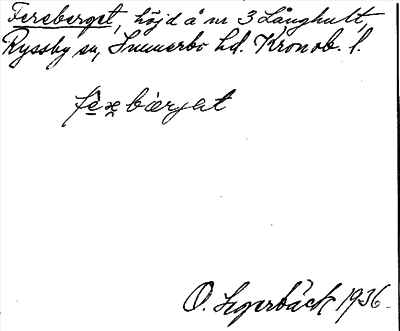 Fereberget, höjd å nr 3 Långhult,
Ryssby sn, Sunnerbo hd. Kronob. l.
bærjat
O. Segerbäck 1936.